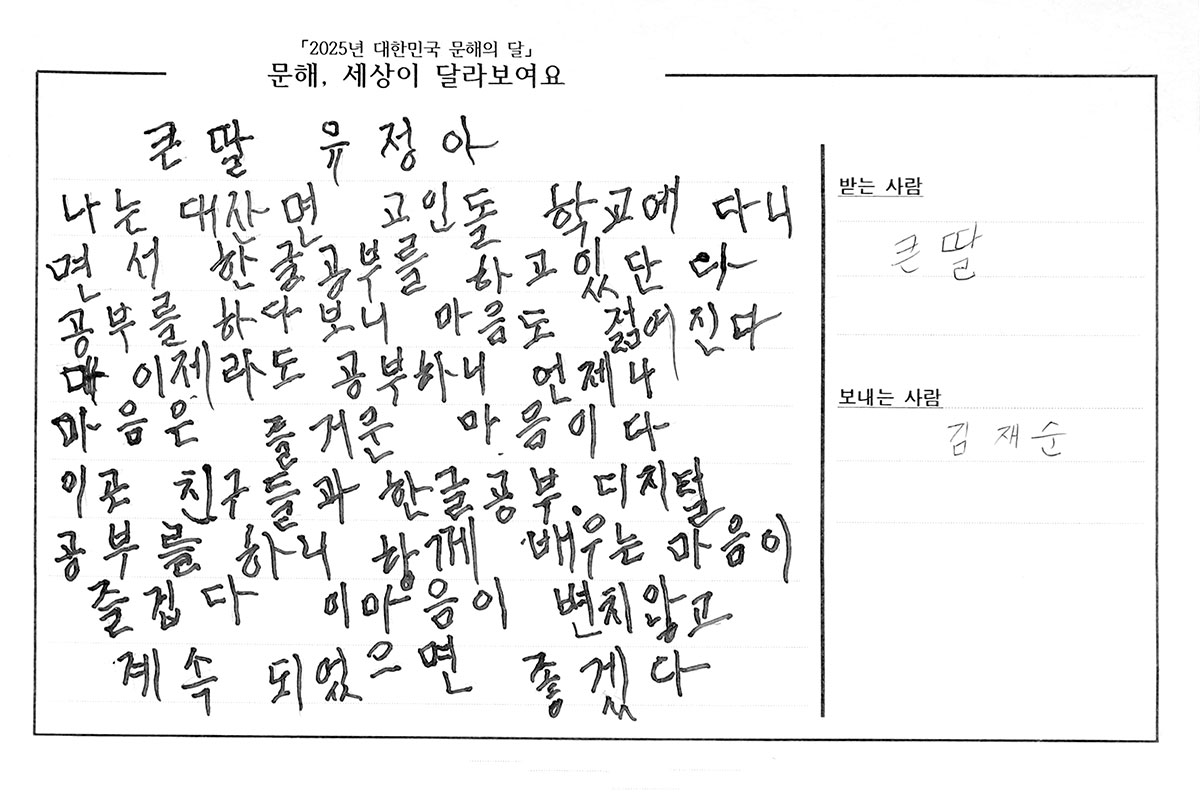 「2025년 대한민국 문해의 달」
문해, 세상이 달라보여요
큰 딸 유 정 아
나는 대잔면 고인돌 학교에 다니
면서 한글공부를 하고 있단다
공부를 하다 보니 마음도 젊어진다
이제라도 공부하니 언제나
마음은 즐거운 마음이다
이곳 친구들과 한글공부, 디지털
공부를 하니 함께 배우는 마음이
즐겁다 이마음이 변치않고
계속 되었으면 좋겠다
받는 사람
큰 딸
보내는 사람
김 재 순